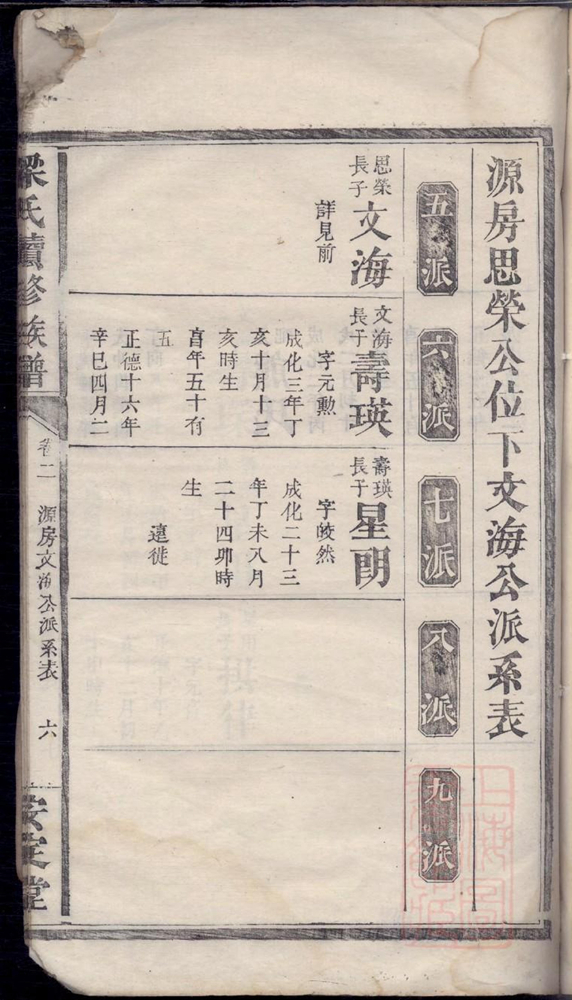 源房思榮公位下文海公派系表
五派
六派
七派
八派
九派
思榮
長子
文海
詳見前
文海
長子
壽瑛
字元勲
成化三年丁
亥十月十三
亥時生
享年五十有
五
正德十六年
辛巳四月二
壽瑛
長子
星朗
字皎然
成化二十三
年丁未八月
二十四卯時
生
遠徙
梁氏續修族譜
卷二
源房文海公派系表
六
安定堂